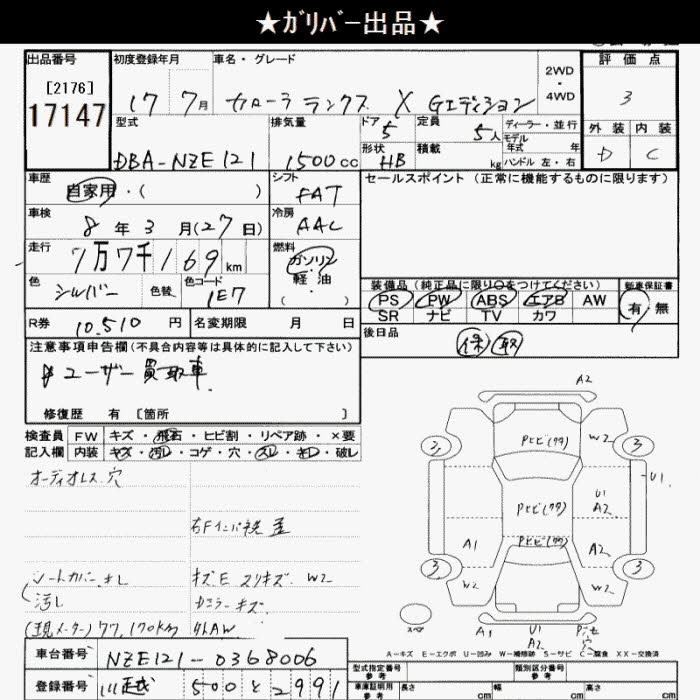 ★ｶﾞﾘﾊﾞｰ出品★
出品番号
[2176]
17147
初度登録年月
17 7月
車名・グレード
カローラ ランクス X Gエディション
2WD
・
4WD
評価点
3
外装 内装
D C
型式
DBA-NZE121
排気量
1500cc
ドア
5
形状
HB
定員
5人
積載
kg
ディーラー・並行
モデル
年式 年
ハンドル 左・右
車歴
自家用・( )
シフト
FAT
セールスポイント (正常に機能するものに限ります)
車検
8年3月(27日)
冷房
AAC
走行
7万7千169km
燃料
ガソリン
軽油
・
( )
色
シルバー
色替
色コード
1E7
装備品 (純正品に限り○をつけてください)
PS PW ABS エアB AW
SR ナビ TV カワ
新車保証書
有・無
R券
10,510円
名変期限 月 日
後日品
保 取
注意事項申告欄 (不具合内容等は具体的に記入して下さい)
ユーザー買取車
修復歴 有 [箇所 ]
検査員
記入欄
FW キズ・飛石・ヒビ割・リペア跡・×要
内装 キズ・汚レ・コゲ・穴・スレ・キレ・破レ
オーディオレス 穴
右Fインパネ視
シートカバー
汚し
キズE スリキズ W2
ドアミラーキズ
(現メーター) 77,170km
外AW
A2
3
3
3
3
W2
W2
W2
U1
U1
A2
A2
A1
A1
U1
A2
穴
A-キズ E-エクボ U-凹み W-補修跡 S-サビ C-腐食 XX-交換済
車台番号
NZE121-0368006
登録番号
川越 500 と 2991
型式指定番号
参考
類別区分番号
参考
車庫証明用
参考
長さ cm
幅 cm
高さ cm